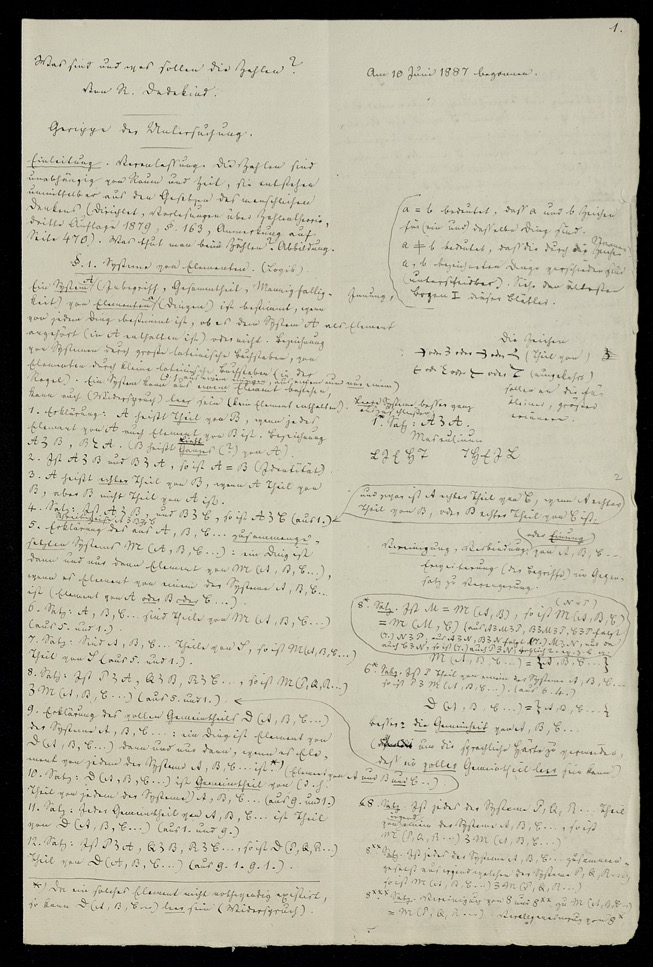 1.
Was sind und was sollen die Zahlen?
Von R. Dedekind.
Gerippe der Untersuchung.
Einleitung. Veranlassung. Die Zahlen sind
unabhängig von Raum und Zeit, sie entstehen
unmittelbar aus den Gesetzen des menschlichen
Denkens (Dirichlet, Vorlesungen über Zahlentheorie,
dritte Auflage 1879, §. 163, Anmerkung auf
Seite 470). Was thut man beim Zählen? Abbildung.
§. 1. Systeme von Elementen. (Logik)
Ein System A (Inbegriff, Gesammtheit, Mannigfaltig-
keit) von Elementen (Dingen) ist bestimmt, wenn
von jedem Ding bestimmt ist, ob es dem System A als Element
angehört (in A enthalten ist) oder nicht. Bezeichnung
von Systemen durch große lateinische Buchstaben, von
Elementen durch kleine lateinische Buchstaben (in der
Regel). Ein System kann aus einem Element bestehen,
kann auch (Widerspruch) leer sein (kein Element enthalten).
1. Erklärung: A heißt Theil von B, wenn jedes
Element von A auch Element von B ist. Bezeichnung
A 3 B, B
A. (B heißt
Ganzes (?) von A).
2. Ist A 3 B und B 3 A, so ist A = B (Identität).
3. A heißt echter Theil von B, wenn A Theil von
B, aber B nicht Theil von A ist.
4. Satz: Ist A 3 B, und B 3 C, so ist A 3 C (aus 1.)
5. Erklärung des aus A, B, C... zusammenge-
setzten Systems M (A, B, C...): ein Ding ist
dann und nur dann Element von M (A, B, C...),
wenn es Element von einem der Systeme A, B, C...
ist (Element von A oder B oder C...).
6. Satz: A, B, C... sind Theile von M (A, B, C...)
(aus 5. und 1.)
7. Satz: Sind A, B, C... Theile von S, so ist M(A, B, C...)
Theil von S (aus 5. und 1.)
8. Satz: Ist P 3 A, Q 3 B, R 3 C..., so ist M (P, Q, R...)
3 M (A, B, C...) (aus 5. und 1.)
9. Erklärung des vollen Gemeintheils D (A, B, C...)
der Systeme A, B, C...: ein Ding ist Element von
D (A, B, C...) dann und nur dann, wenn es Ele-
ment von jedem der Systeme A, B, C... ist. *) (Element von A und B und C...)
10. Satz: D (A, B, C...) ist Gemeintheil von (d. h.
Theil von jedem der Systeme) A, B, C... (aus 9. und 1.)
11. Satz: Jeder Gemeintheil von A, B, C... ist Theil
von D (A, B, C...) (aus 1. und 9.)
12. Satz: Ist P 3 A, Q 3 B, R 3 C..., so ist D (P, Q, R...)
Theil von D (A, B, C...) (aus 9. 1. 9. 1.)
*) Da ein solches Element nicht nothwendig existirt,
so kann D (A, B, C...) leer sein (Widerspruch).
Am 10 Juni 1887 begonnen.
a = b bedeutet, daß a und b Zeichen
für ein und dasselbe Ding sind.
a ≠ b bedeutet, daß die durch die Zeichen
a, b bezeichneten Dinge verschieden sind
Siehe den ältesten
Bogen I dieses Blattes.
Die Zeichen
(Theil von)
(umgekehrt)
1*. Satz: A 3 A.
und zwar ist A echter Theil von C, wenn A echter
Theil von B, oder B echter Theil von C ist.
oder Einung
Vereinigung, Verbindung von A, B, C...
Erweiterung (des Begriffs) im Gegen-
satz zu Verengerung.
8*. Satz. Ist M = M (A, B), so ist M (A, B, C)
= M (M, C)
M (A, B, C...) = {A, B, C...}
6*. Satz. Ist P Theil von einem der Systeme A, B, C...
so ist P 3 M (A, B, C...). (aus 6. 4.)
D (A, B, C...) =
besser: die Gemeinheit von A, B, C...
um die sprachliche Härte zu vermeiden,
daß ein voller Gemeintheil leer sein kann)
8. Satz. Ist jedes der Systeme P, Q, R... Theil
von einem der Systeme A, B, C..., so ist
M (P, Q, R...) 3 M (A, B, C...)
8** Satz. Ist jedes der Systeme A, B, C... zusammen-
gesetzt aus irgend welchen der Systeme P, Q, R...,
so ist M (A, B, C...) 3 M (P, Q, R...)
8*** Satz. Vereinigung von 8 und 8** zu M (A, B, C...)
= M (P, Q, R...). Verallgemeinerung von 8*